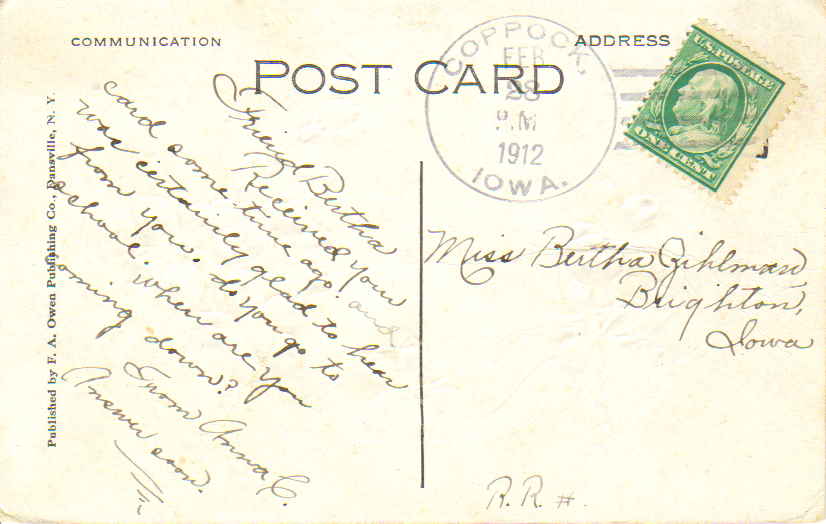 COMMUNICATION
POST CARD
ADDRESS
COPPOCK,
FEB
28
P.M
1912
IOWA.
U.S. POSTAGE
ONE CENT
Published by F. A. Owen Publishing Co., Dansville, N. Y.
Friend Bertha
Received your
card some time ago. and
was certainly glad to hear
from you. do you go to
school. when are you
coming down?
From Anna C.
Answer soon.
Miss Bertha Zihlman,
Brighton,
Iowa
R.R. #